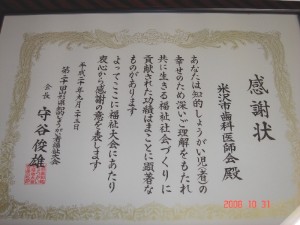 感謝状
米沢市歯科医師会 殿
あなたは知的しょうがい児(者)の
幸せのため深いご理解をもたれ
共に生きる福祉社会づくりに
貢献された功績はまことに顕著な
ものがあります
よってここに福祉大会にあたり
衷心から感謝の意を表します
平成二十年九月二十三日
会長 守谷俊雄
2008 10 31